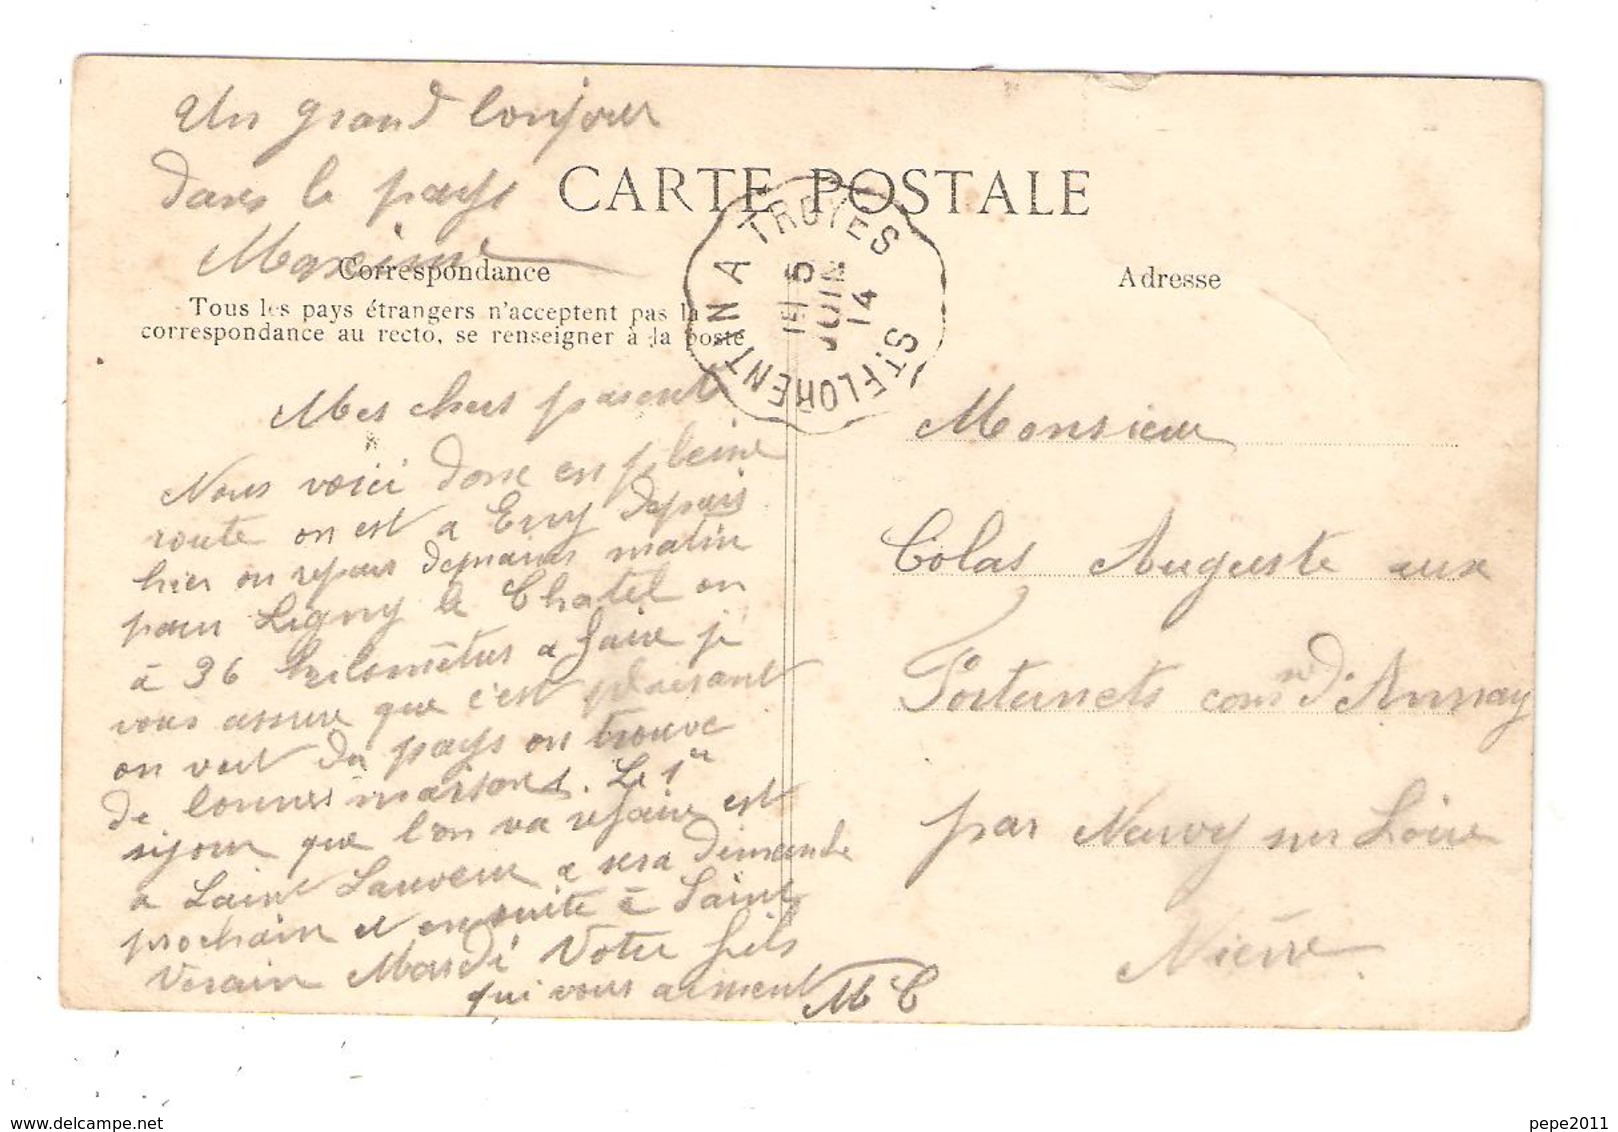 Un grand bonjour
dans le pays
Maxime
CARTE POSTALE
Correspondance
Tous les pays étrangers n'acceptent pas la
correspondance au recto, se renseigner à la poste
ST FLORENTIN A TROYES
15 JUIN 14
Adresse
Mes chers parent
Nous voici donc en pleine
route on est a Ervy depuis
hier on repars demains matin
pour Ligny le Chatel on
à 36 kilomètres a faire je
vous assure que c'est plaisant
on voit du pays on trouve
de bonnes maisons. Le 1er
séjour que l'on va refaire est
a Saint Sauveur a sera dimanche
prochain et ensuite à Saint
Verain Mardi Votre fils
qui vous aiment M C
Monsieur
Colas Auguste aux
com ne d'Annay
par Neuvy sur Loire
Nièvre
pepe2011
www.delcampe.net